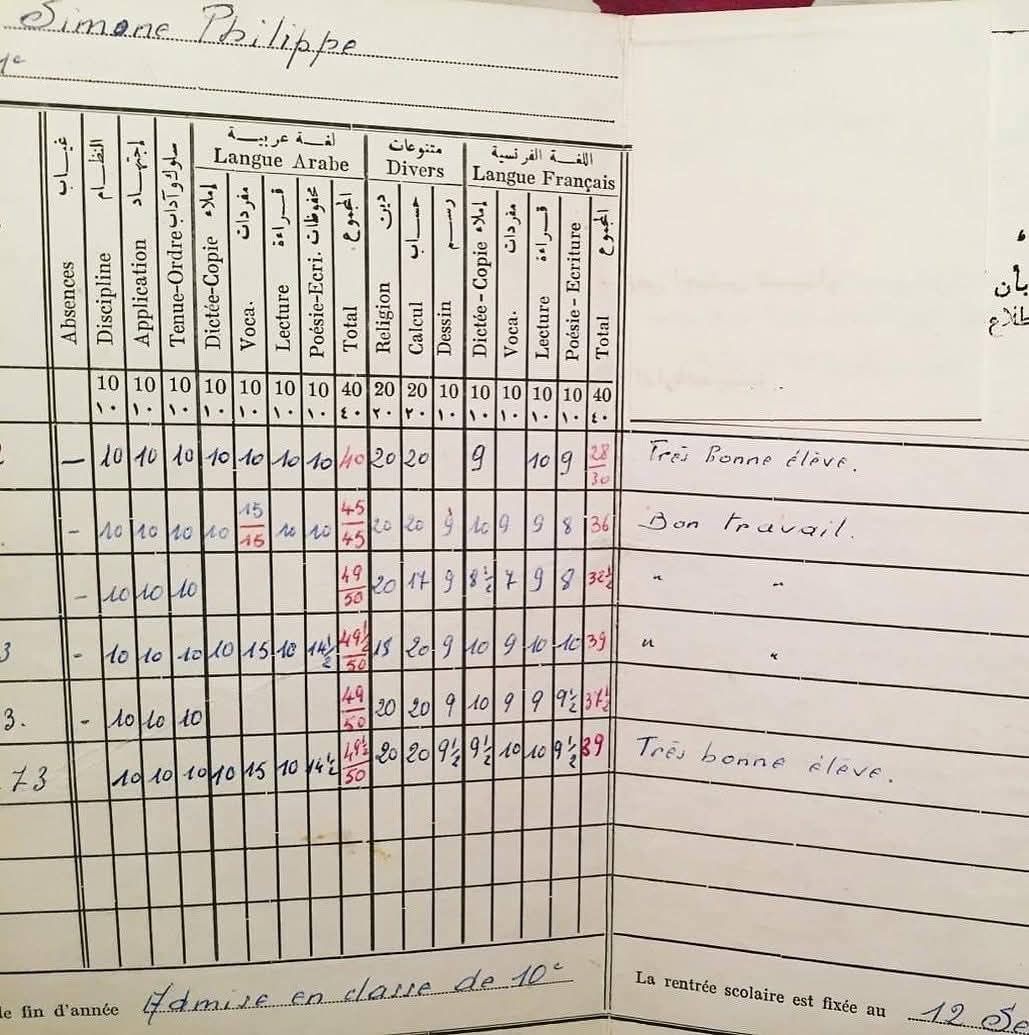 Simone Philippe
لغة عربية متنوعات اللغة الفرنسية
Langue Arabe Divers Langue Français
غياب النظام إجتهاد سلوك وآداب إملاء مفردات قراءة محفوظات المجموع دين حساب رسم إملاء مفردات قراءة المجموع
Absences Discipline Application Tenue-Ordre Dictée-Copie Voca. Lecture Poésie-Ecri. Total Religion Calcul Dessin Dictée-Copie Voca. Lecture Poésie - Ecriture Total
10 10 10 10 10 10 10 40 20 20 10 10 10 10 10 40
١٠ ١٠ ١٠ ١٠ ١٠ ١٠ ١٠ ٤٠ ٢٠ ٢٠ ١٠ ١٠ ١٠ ١٠ ١٠ ٤٠
— 10 10 10 10 10 10 10 40 20 20 9 10 9 28/30 Très bonne élève.
- 10 10 10 10 15/15 10 10 45/45 20 20 9 10 9 9 8 36 Bon travail.
- 10 10 10 49/50 20 17 9 8½ 7 9 8 32½ " "
3 - 10 10 10 10 15 10 14½ 49½/50 18 20 9 10 9 10 10 39 " "
3. - 10 10 10 49/50 20 20 9 10 9 9 9½ 37½
73 10 10 10 10 15 10 14½ 49½/50 20 20 9½ 9½ 10 10 9½ 39 Très bonne élève.
de fin d'année Admise en classe de 10e
La rentrée scolaire est fixée au 12